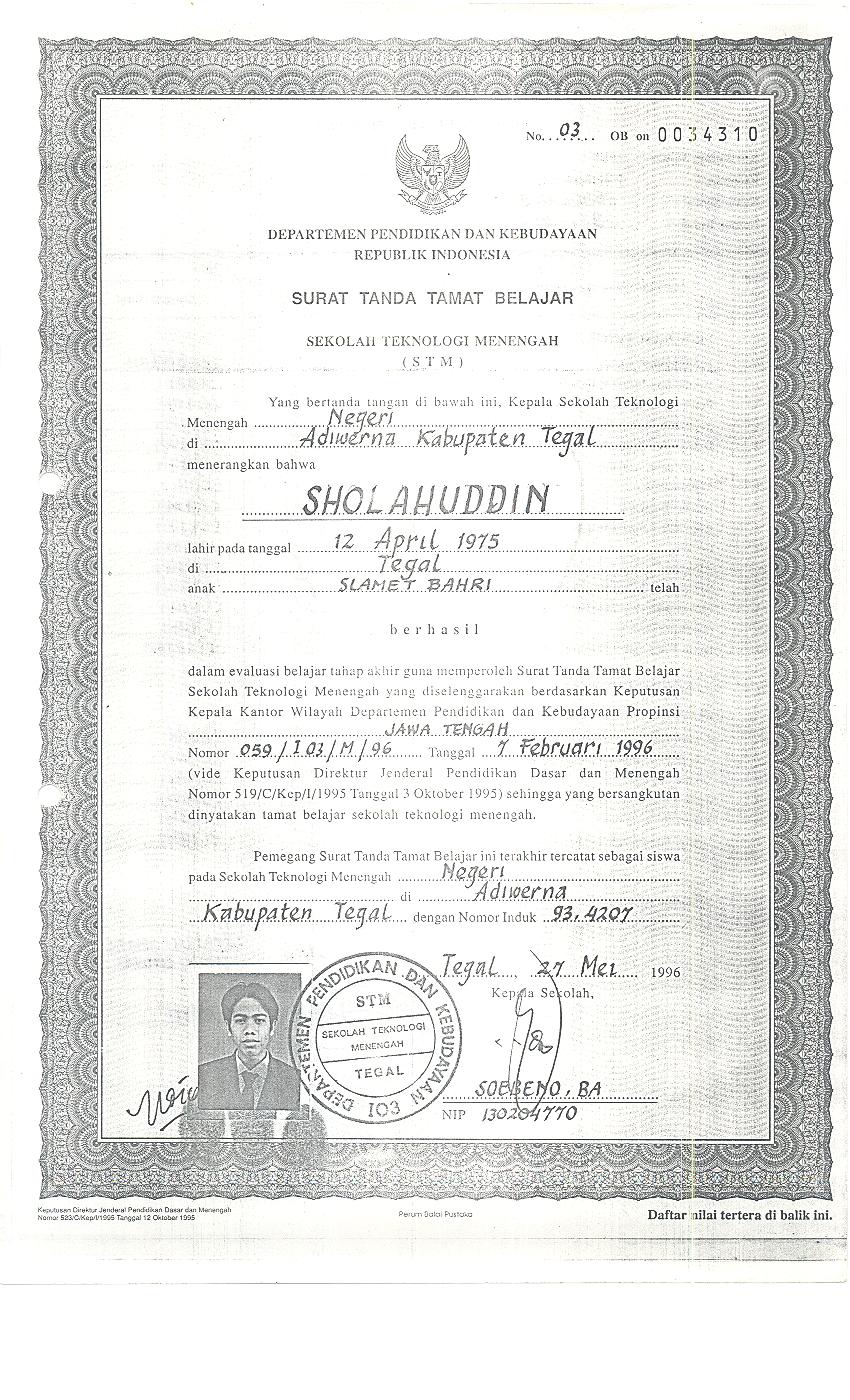 No. . . 03 . . . OB on 0034310
DEPARTEMEN PENDIDIKAN DAN KEBUDAYAAN
REPUBLIK INDONESIA
SURAT TANDA TAMAT BELAJAR
SEKOLAH TEKNOLOGI MENENGAH
( S T M )
Yang bertanda tangan di bawah ini, Kepala Sekolah Teknologi
Menengah Negeri
di Adiwerna Kabupaten Tegal
menerangkan bahwa
SHOLAHUDDIN
lahir pada tanggal 12 April 1975
di Tegal
anak SLAMET BAHRI telah
b e r h a s i l
dalam evaluasi belajar tahap akhir guna memperoleh Surat Tanda Tamat Belajar
Sekolah Teknologi Menengah yang diselenggarakan berdasarkan Keputusan
Kepala Kantor Wilayah Departemen Pendidikan dan Kebudayaan Propinsi
JAWA TENGAH
Nomor 059/I03/M/96 Tanggal 7 Februari 1996
(vide Keputusan Direktur Jenderal Pendidikan Dasar dan Menengah
Nomor 519/C/Kep/I/1995 Tanggal 3 Oktober 1995) sehingga yang bersangkutan
dinyatakan tamat belajar sekolah teknologi menengah.
Pemegang Surat Tanda Tamat Belajar ini terakhir tercatat sebagai siswa
pada Sekolah Teknologi Menengah Negeri
di Adiwerna
Kabupaten Tegal dengan Nomor Induk 93.4207
Tegal, 27 Mei 1996
Kepala Sekolah,
DEPARTEMEN PENDIDIKAN DAN KEBUDAYAAN
STM
SEKOLAH TEKNOLOGI
MENENGAH
TEGAL
I03
SOEBENO, BA
NIP 130204770
Keputusan Direktur Jenderal Pendidikan Dasar dan Menengah
Nomor 523/C/Kep/I/1995 Tanggal 12 Oktober 1995
Perum Balai Pustaka
Daftar nilai tertera di balik ini.